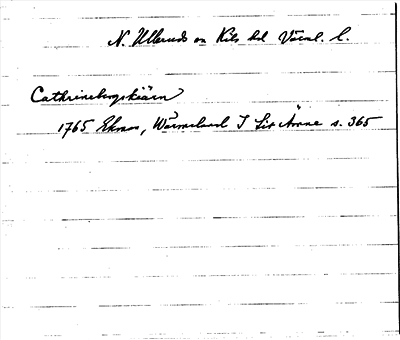 N. Ullerud sn Kils hd Värml. l.
Cathrinebergskiärn
1765 Ekman, Wärmeland I Lit Ämne s. 365